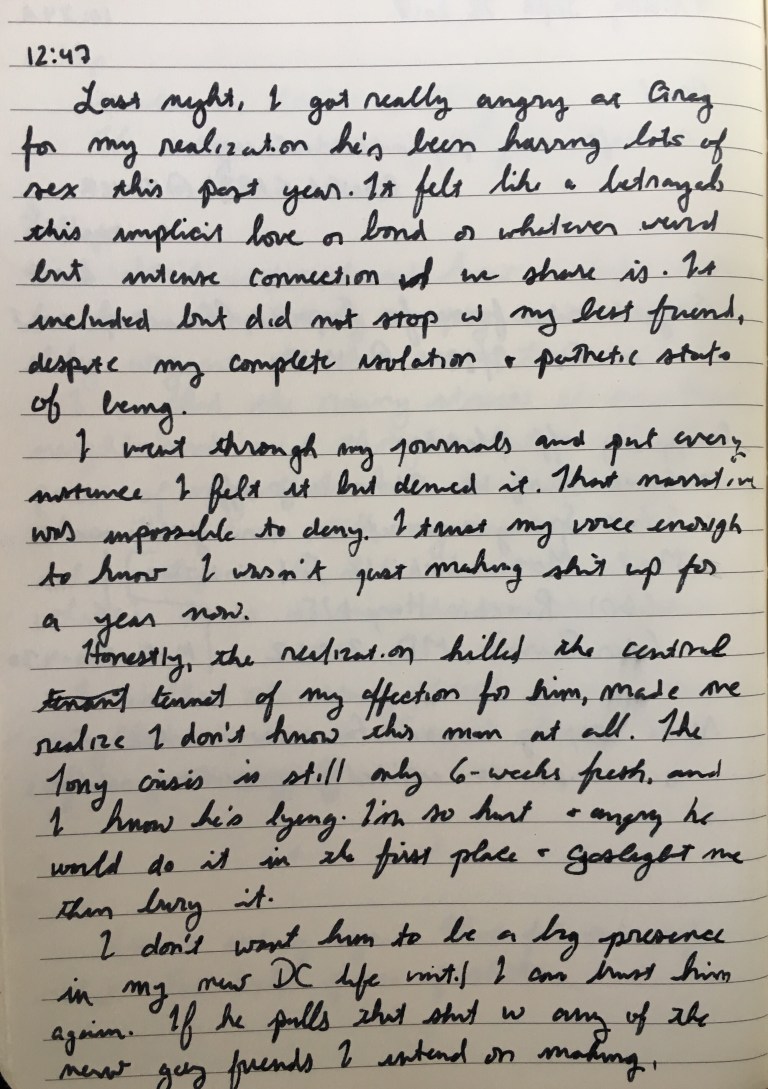 12:47
Last night, I got really angry at Greg
for my realization he's been having lots of
sex this past year. It felt like a betrayal
this implicit love or bond or whatever weird
but intense connection we share is. It
included but did not stop w my best friend,
despite my complete isolation + pathetic state
of being.
I went through my journals and put every
instance I felt it but denied it. That narrative
was impossible to deny. I trust my voice enough
to know I wasn't just making shit up for
a year now.
Honestly, the realization killed the central
tenant tennet of my affection for him, made me
realize I don't know this man at all. The
Tony crisis is still only 6-weeks fresh, and
I know he's lying. I'm so hurt + angry he
would do it in the first place + gaslight me
then bury it.
I don't want him to be a big presence
in my new DC life until I can trust him
again. If he pulls that shit w any of the
new gay friends I intend on making,